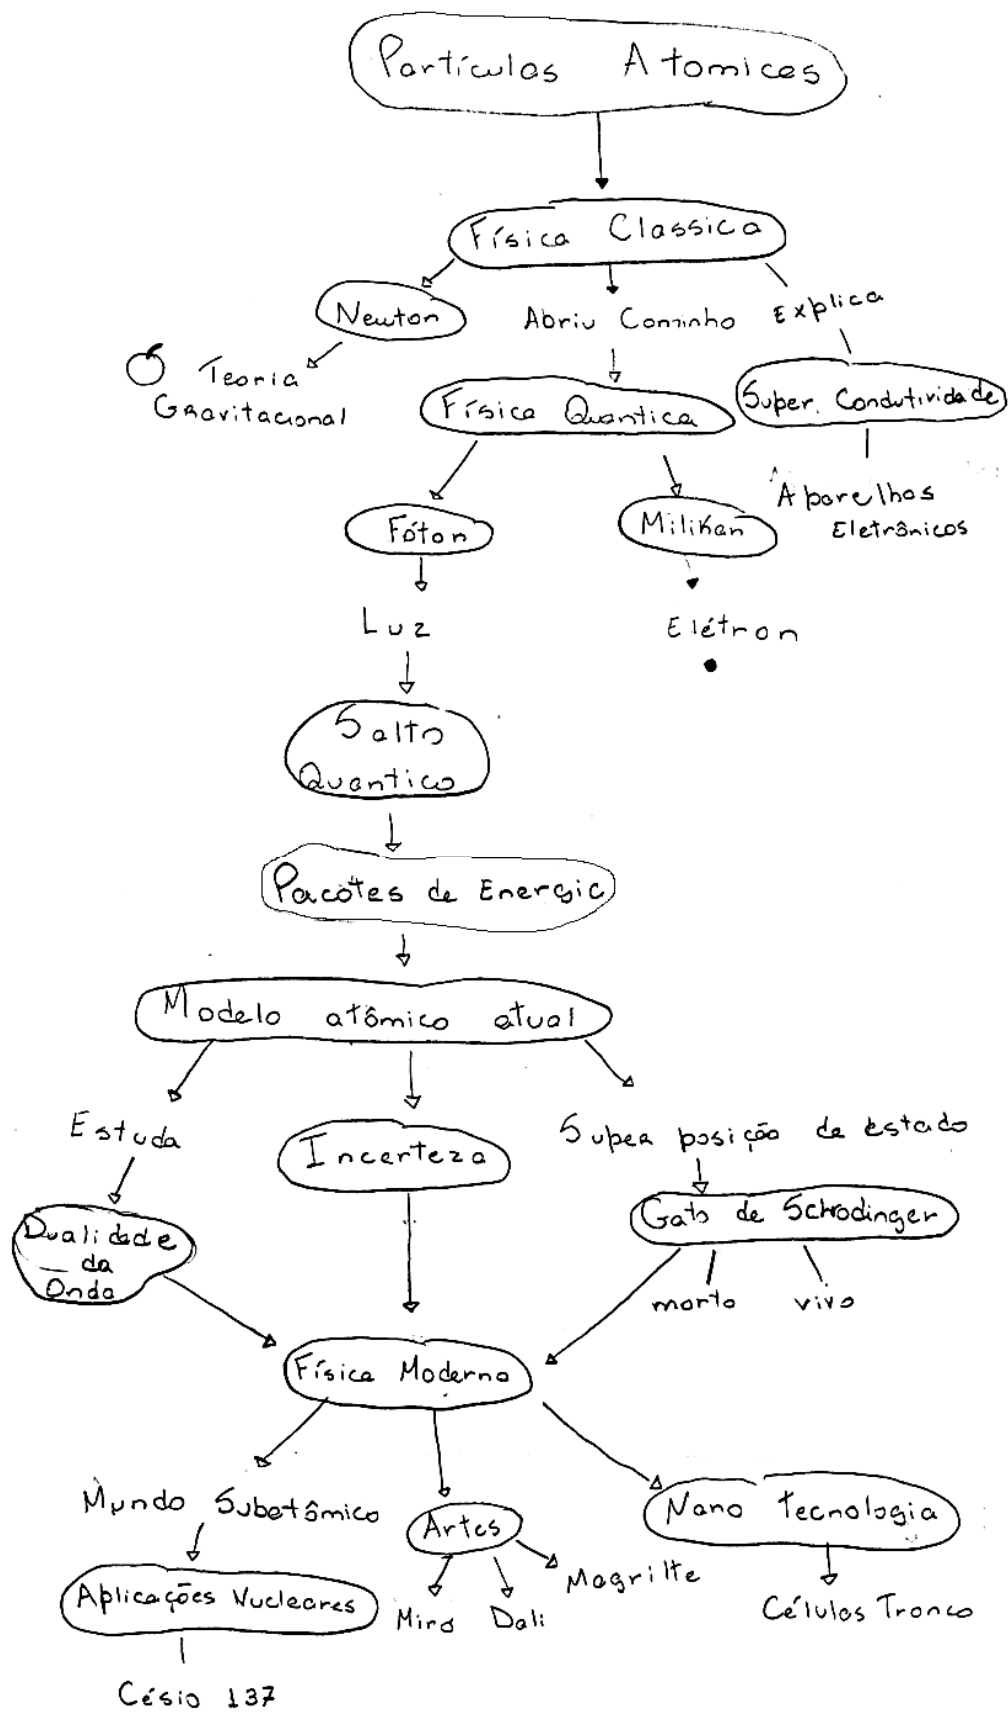 Partículas Atomicas
Física Classica
Newton
Abriu Caminho
Explica
Teoria
Gravitacional
Física Quantica
Super. Condutividade
Fóton
Milikan
Aparelhos
Eletrônicos
Luz
Elétron
Salto
Quantico
Pacotes de Energia
Modelo atômico atual
Estuda
Incerteza
Super posição de estado
Dualidade
da
Onda
Gato de Schrodinger
morto
vivo
Física Moderna
Mundo Subatômico
Artes
Nano tecnologia
Aplicações Nucleares
Miro
Dali
Magritte
Células Tronco
Césio 137